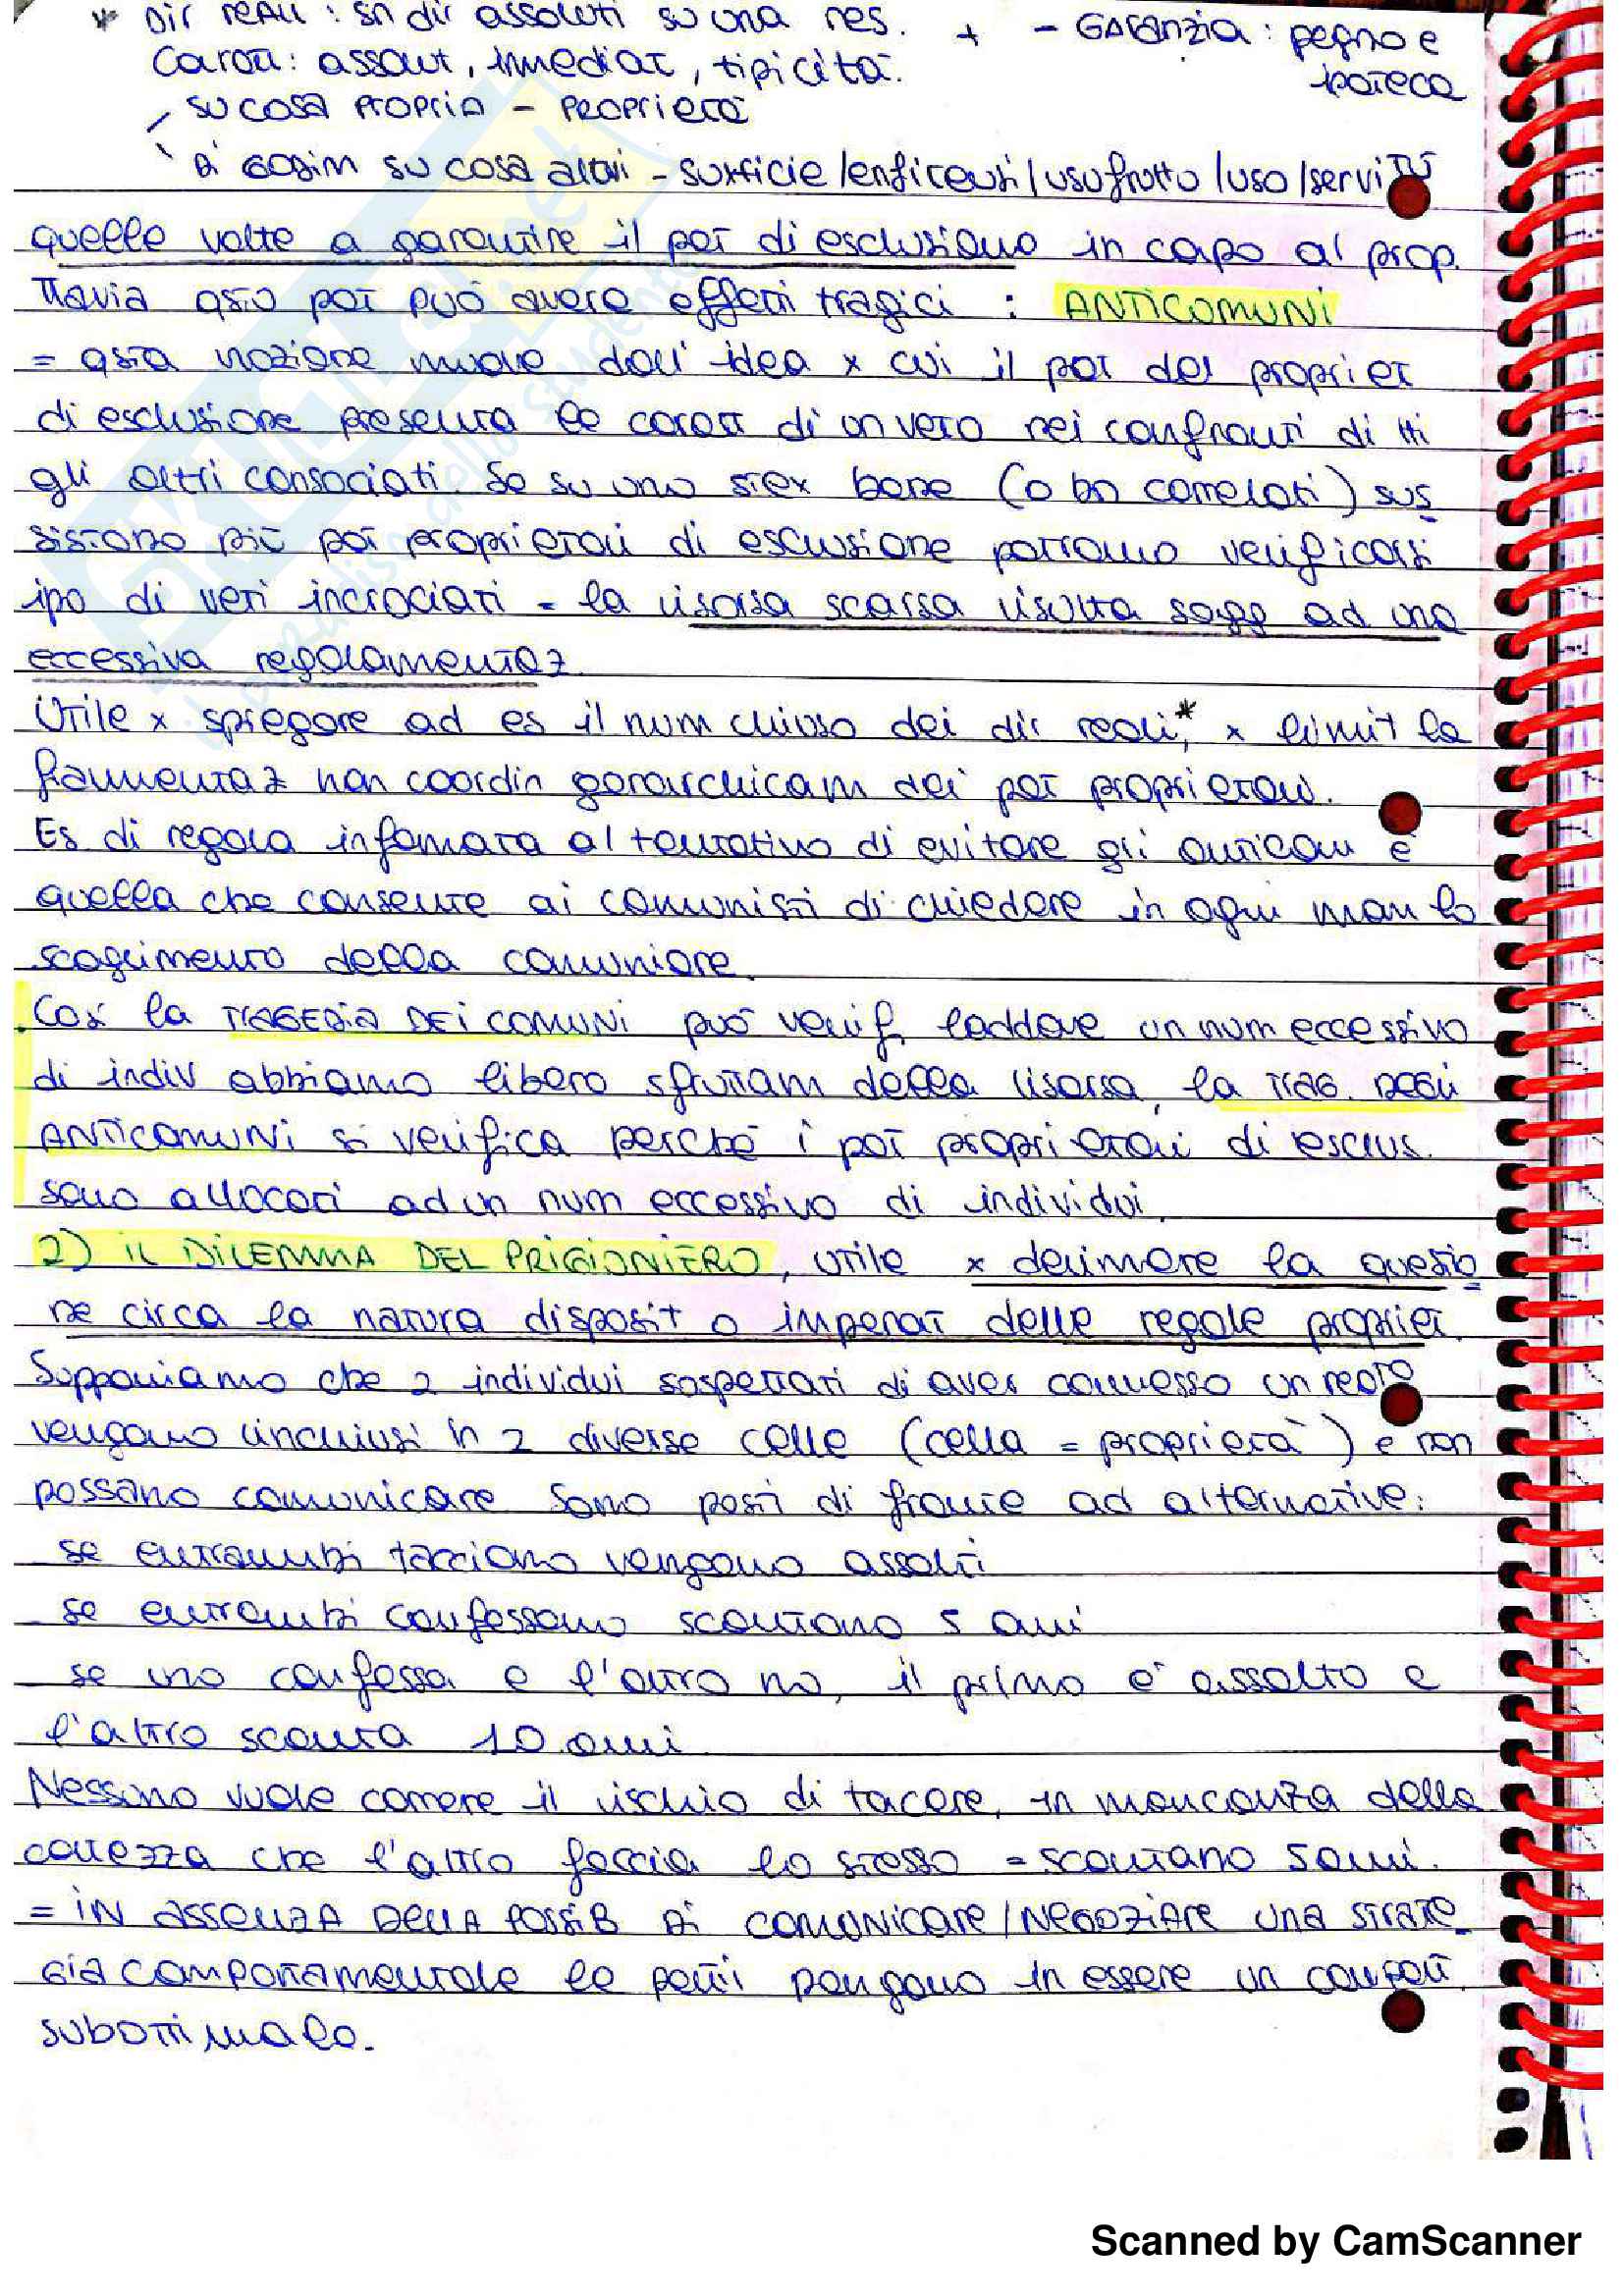 * Dir reali : sn dir assoluti su una res. + - Garanzia : pegno e
Caratt : assolut, immediat, tipicità. ipoteca
su cosa propria - proprietà
di godim su cosa altrui - superficie/enfiteusi/usufrutto/uso/servitù
quelle volte a garantire il pot di esclusione in capo al prop.
Ttavia qsto pot può avere effetti tragici : ANTICOMUNI
= qsta nozione muove dall'idea x cui il pot del propriet
di esclusione presenta le caratt di un veto nei confronti di tti
gli altri consociati. Se su uno stex bene (o bn correlati) sus
sistono più pot proprietari di esclusione potranno verificarsi
ipo di veti incrociati = la risorsa scarsa risulta sogg ad una
eccessiva regolamentaz.
Utile x spiegare ad es il num chiuso dei dir reali,* x limit la
frammentaz non coordin gerarchicam dei pot proprietari.
Es di regola informata al tentativo di evitare gli anticom è
quella che consente ai comunisti di chiedere in ogni mom lo
scioglimento della comunione.
Cos la TRAGEDIA DEI COMUNI può verif laddove un num eccessivo
di indiv abbiamo libero sfruttam della risorsa, la TRAG. DEGLI
ANTICOMUNI si verifica perché i pot proprietari di esclus.
sono allocati ad un num eccessivo di individui.
2) IL DILEMMA DEL PRIGIONIERO, utile x derimere la questio
ne circa la natura disposit o imperat delle regole propriet.
Supponiamo che 2 individui sospettati di aver commesso un reato
vengano rinchiusi in 2 diverse celle (cella = proprietà) e non
possano comunicare. Sono posti di fronte ad alternative:
- se entrambi tacciono vengono assolti
- se entrambi confessano scontano 5 anni
- se uno confessa e l'altro no, il primo è assolto e
l'altro sconta 10 anni.
Nessuno vuole correre il rischio di tacere, in mancanza della
certezza che l'altro faccia lo stesso = scontano 5 anni.
= IN ASSENZA DELLA POSSIB DI COMUNICARE/NEGOZIARE UNA STRATE
GIA COMPORTAMENTALE le parti pongono in essere un comport
subottimale.
Scanned by CamScanner